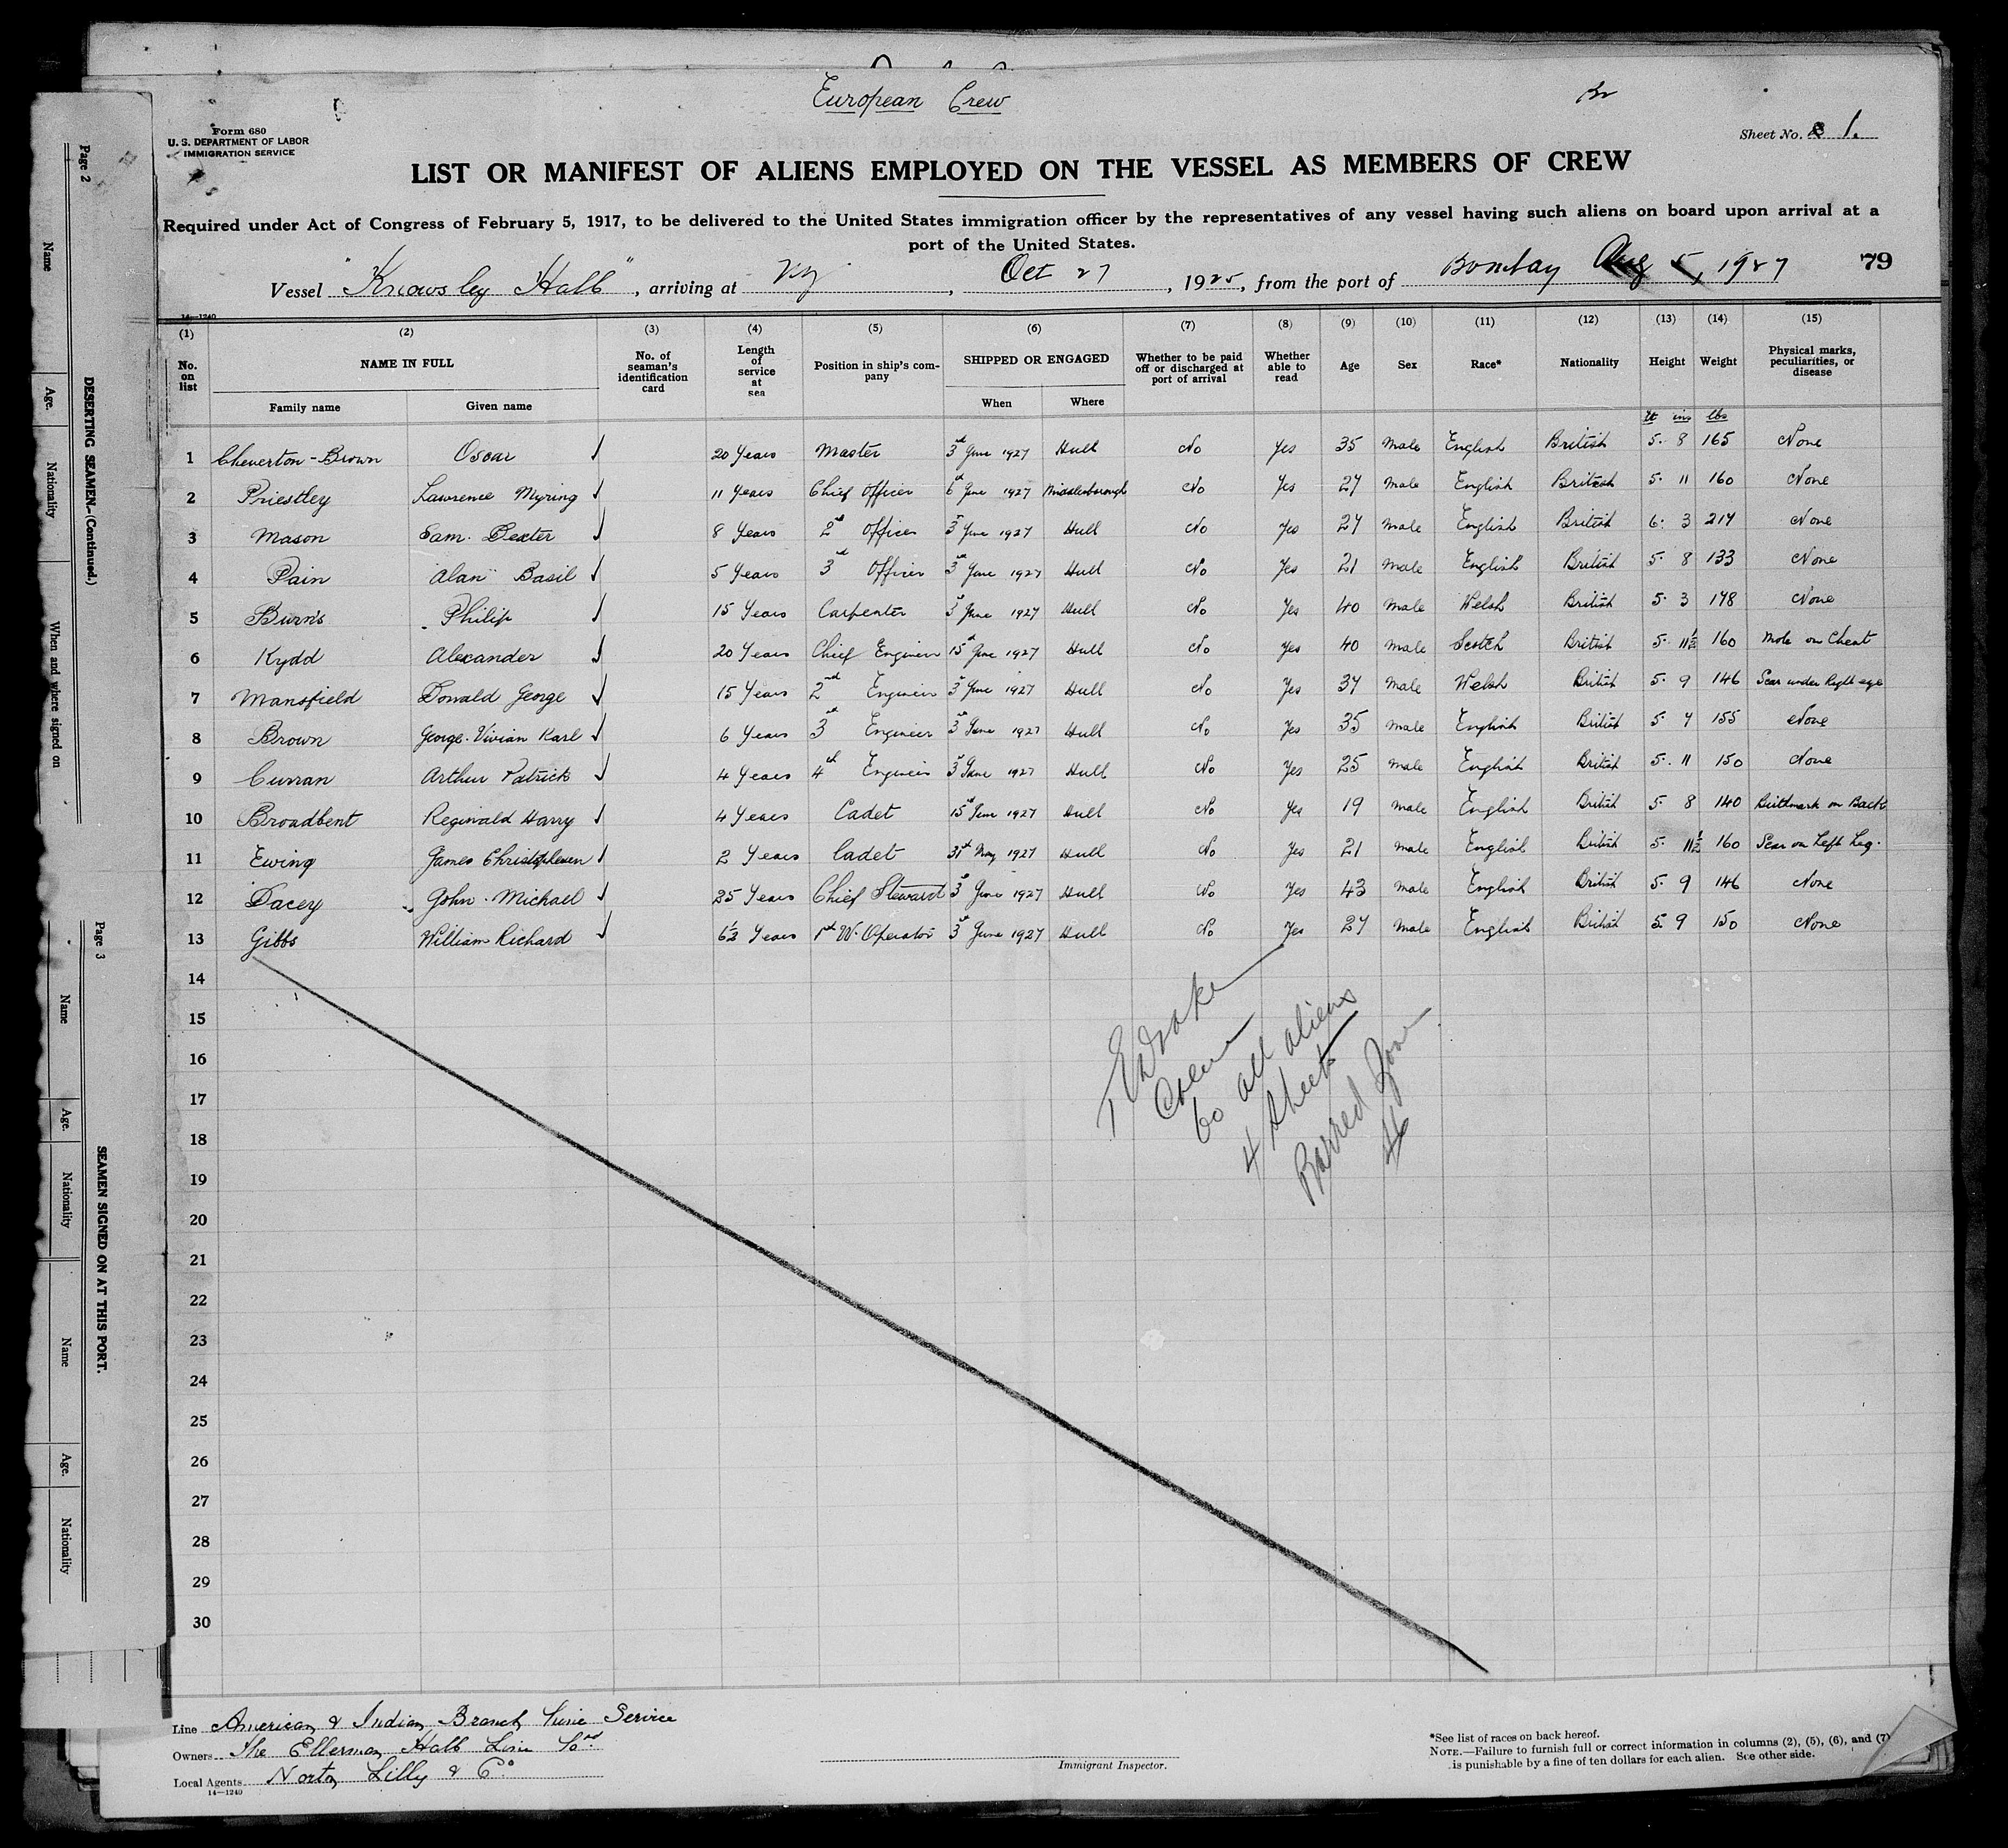 European Crew
Form 680
U. S. DEPARTMENT OF LABOR
IMMIGRATION SERVICE
Sheet No. 1.
LIST OR MANIFEST OF ALIENS EMPLOYED ON THE VESSEL AS MEMBERS OF CREW
Required under Act of Congress of February 5, 1917, to be delivered to the United States immigration officer by the representatives of any vessel having such aliens on board upon arrival at a
port of the United States.
Vessel "Knowsley Hall", arriving at NY, Oct 27, 1925, from the port of Bombay Aug 5, 1927 79
14—1240
(1) (2) (3) (4) (5) (6) (7) (8) (9) (10) (11) (12) (13) (14) (15)
No. on list NAME IN FULL No. of seaman's identification card Length of service at sea Position in ship's company SHIPPED OR ENGAGED Whether to be paid off or discharged at port of arrival Whether able to read Age Sex Race* Nationality Height Weight Physical marks, peculiarities, or disease
Family name Given name When Where
ft ins lbs
1 Cheverton-Brown Oscar 20 Years Master 3rd June 1927 Hull No Yes 35 Male English British 5. 8 165 None
2 Priestley Lawrence Myring 11 Years Chief Officer 6th June 1927 Middlesborough No Yes 27 Male English British 5. 11 160 None
3 Mason Sam. Dexter 8 Years 2nd Officer 3rd June 1927 Hull No Yes 27 Male English British 6. 3 217 None
4 Pain "Alan" Basil 5 Years 3rd Officer 3rd June 1927 Hull No Yes 21 Male English British 5. 8 133 None
5 Burns Philip 15 Years Carpenter 3rd June 1927 Hull No Yes 40 Male Welsh British 5. 3 178 None
6 Kydd Alexander 20 Years Chief Engineer 15th June 1927 Hull No Yes 40 Male Scotch British 5. 11½ 160 Mole on Chest
7 Mansfield Donald George 15 Years 2nd Engineer 3rd June 1927 Hull No Yes 37 Male Welsh British 5. 9 146 Scar under Right eye
8 Brown George. Vivian Karl 6 Years 3rd Engineer 3rd June 1927 Hull No Yes 35 Male English British 5. 7 155 None
9 Curran Arthur Patrick 4 Years 4th Engineer 3rd June 1927 Hull No Yes 25 Male English British 5. 11 150 None
10 Broadbent Reginald Harry 4 Years Cadet 15th June 1927 Hull No Yes 19 Male English British 5. 8 140 Birthmark on Back
11 Ewing James 2 Years Cadet 31st May 1927 Hull No Yes 21 Male English British 5. 11½ 160 Scar on Left Leg.
12 Dacey John. Michael 25 Years Chief Steward 3rd June 1927 Hull No Yes 43 Male English British 5. 9 146 None
13 Gibbs William Richard 6½ Years 1st W. Operator 3rd June 1927 Hull No Yes 27 Male English British 5 9 150 None
14
15
16
17
18
19
20
21
22
23
24
25
26
27
28
29
30
60 all aliens
4 sheets
Barred Zone
Line American & Indian Branch Line Service
Owners The Ellerman Hall Line
Local Agents Norton Lilly & Co.
14—1240
Immigrant Inspector.
*See list of races on back hereof.
NOTE.—Failure to furnish full or correct information in columns (2), (5), (6), and (7)
is punishable by a fine of ten dollars for each alien. See other side.
Page 2
DESERTING SEAMEN.—(Continued.)
Name
Age.
Nationality
When and where signed on
Page 3
SEAMEN SIGNED ON AT THIS PORT.
Name
Age.
Nationality
Name
Age.
Nationality